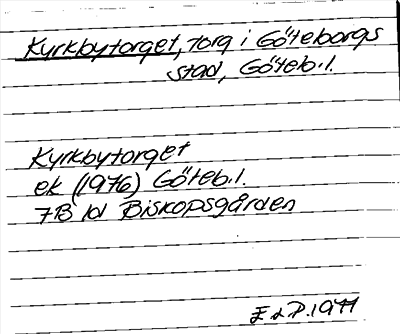 Kyrkbytorget, torg i Göteborgs
stad, Göteb.l.
Kyrkbytorget
ek (1976) Göteb.l.
7B 1d Biskopsgården
E d P. 1977